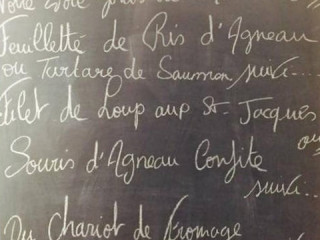 Feuilletté de Ris d'Agneau
ou Tartare de Saumon suivi....
Filet de Loup aux St-Jacques
ou
Souris d'Agneau Confite
suivi..
Du Chariot de Fromage